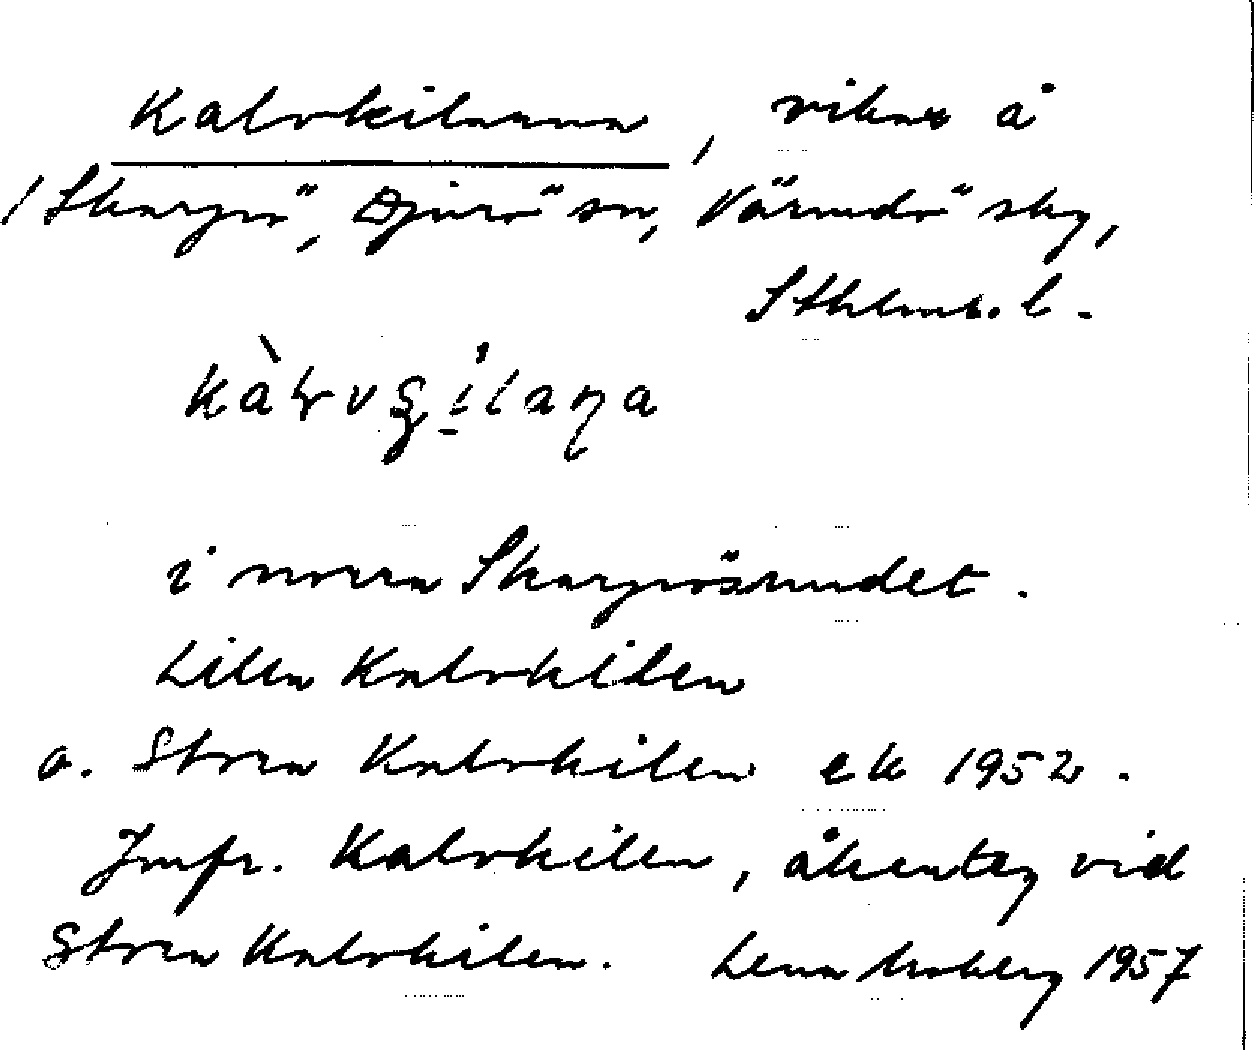 Kalvkilarna, vikar å
/Skarpö, Djurö sn, Värmdö skg,
Sthlms. l.
i norra Skarpösundet.
Lilla Kalvkilen
o. Stora Kalvkilen ek 1952.
Jmfr. Kalvkilen, åkerteg vid
Stora Kalvkilen. Lena Moberg 1957